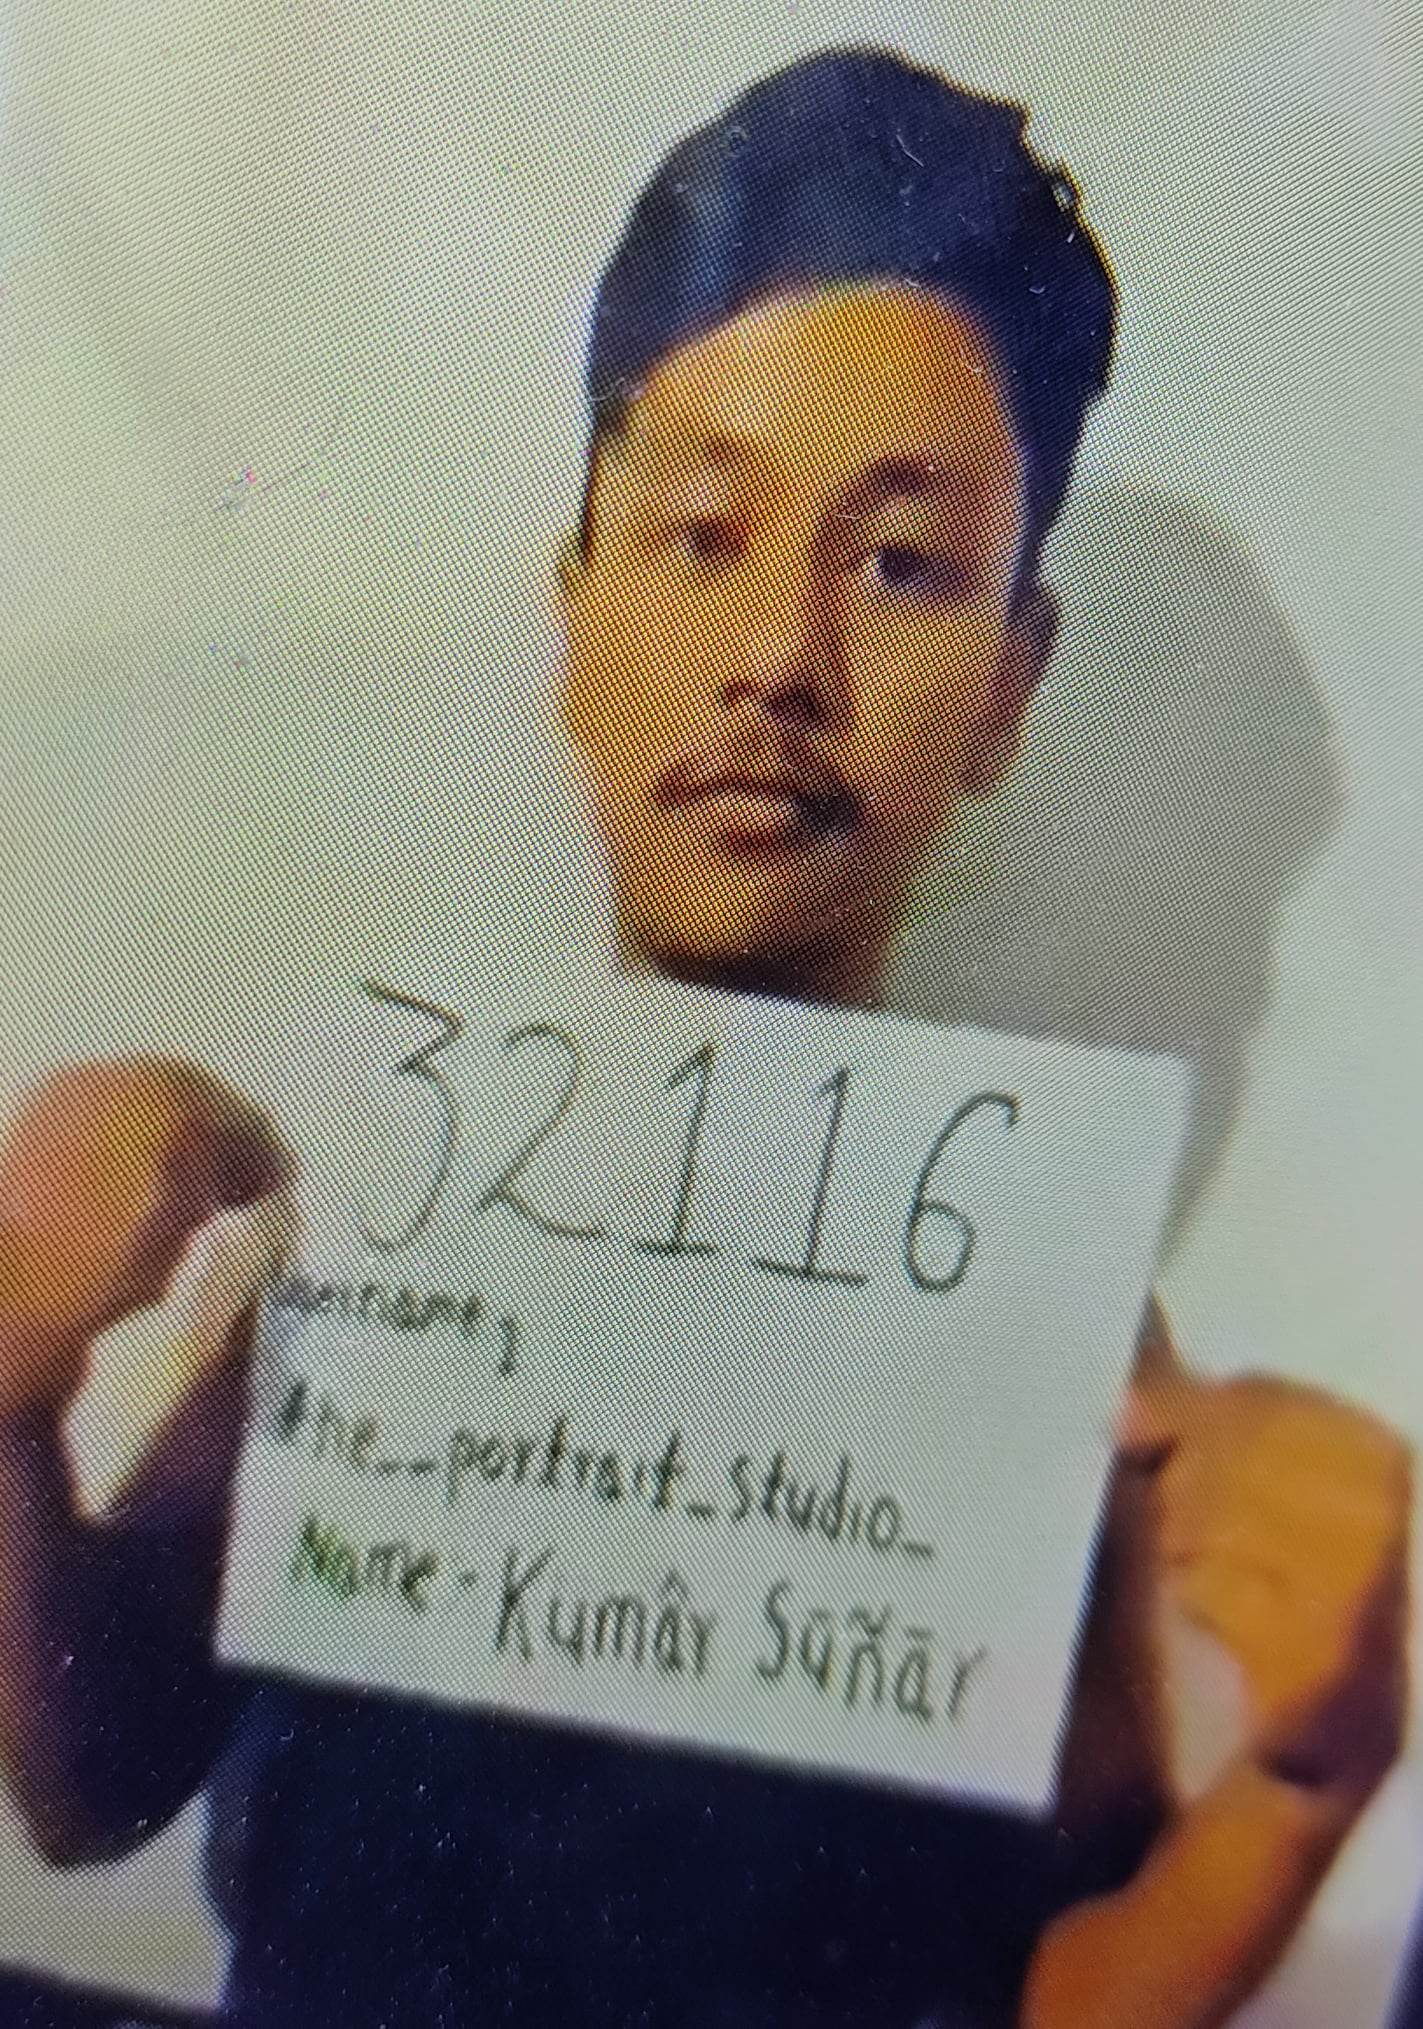 32116
the__portrait_studio_
Name. Kumâr Sañār